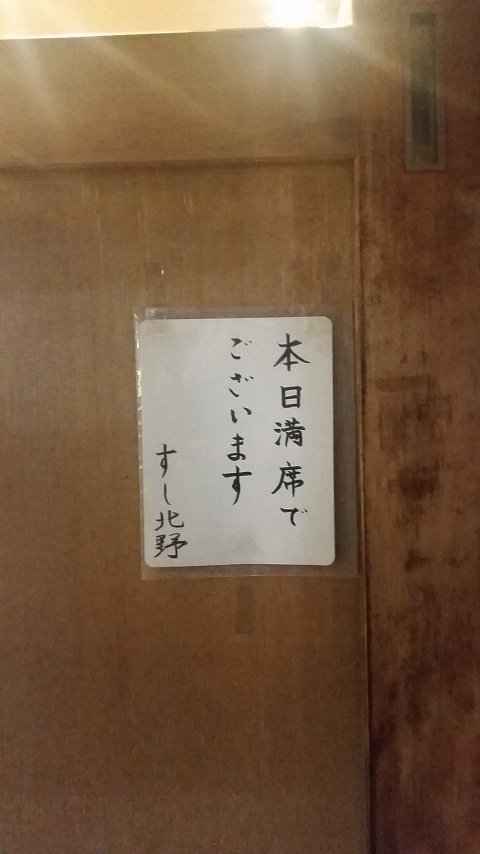 本日満席で
ございます
すし北野